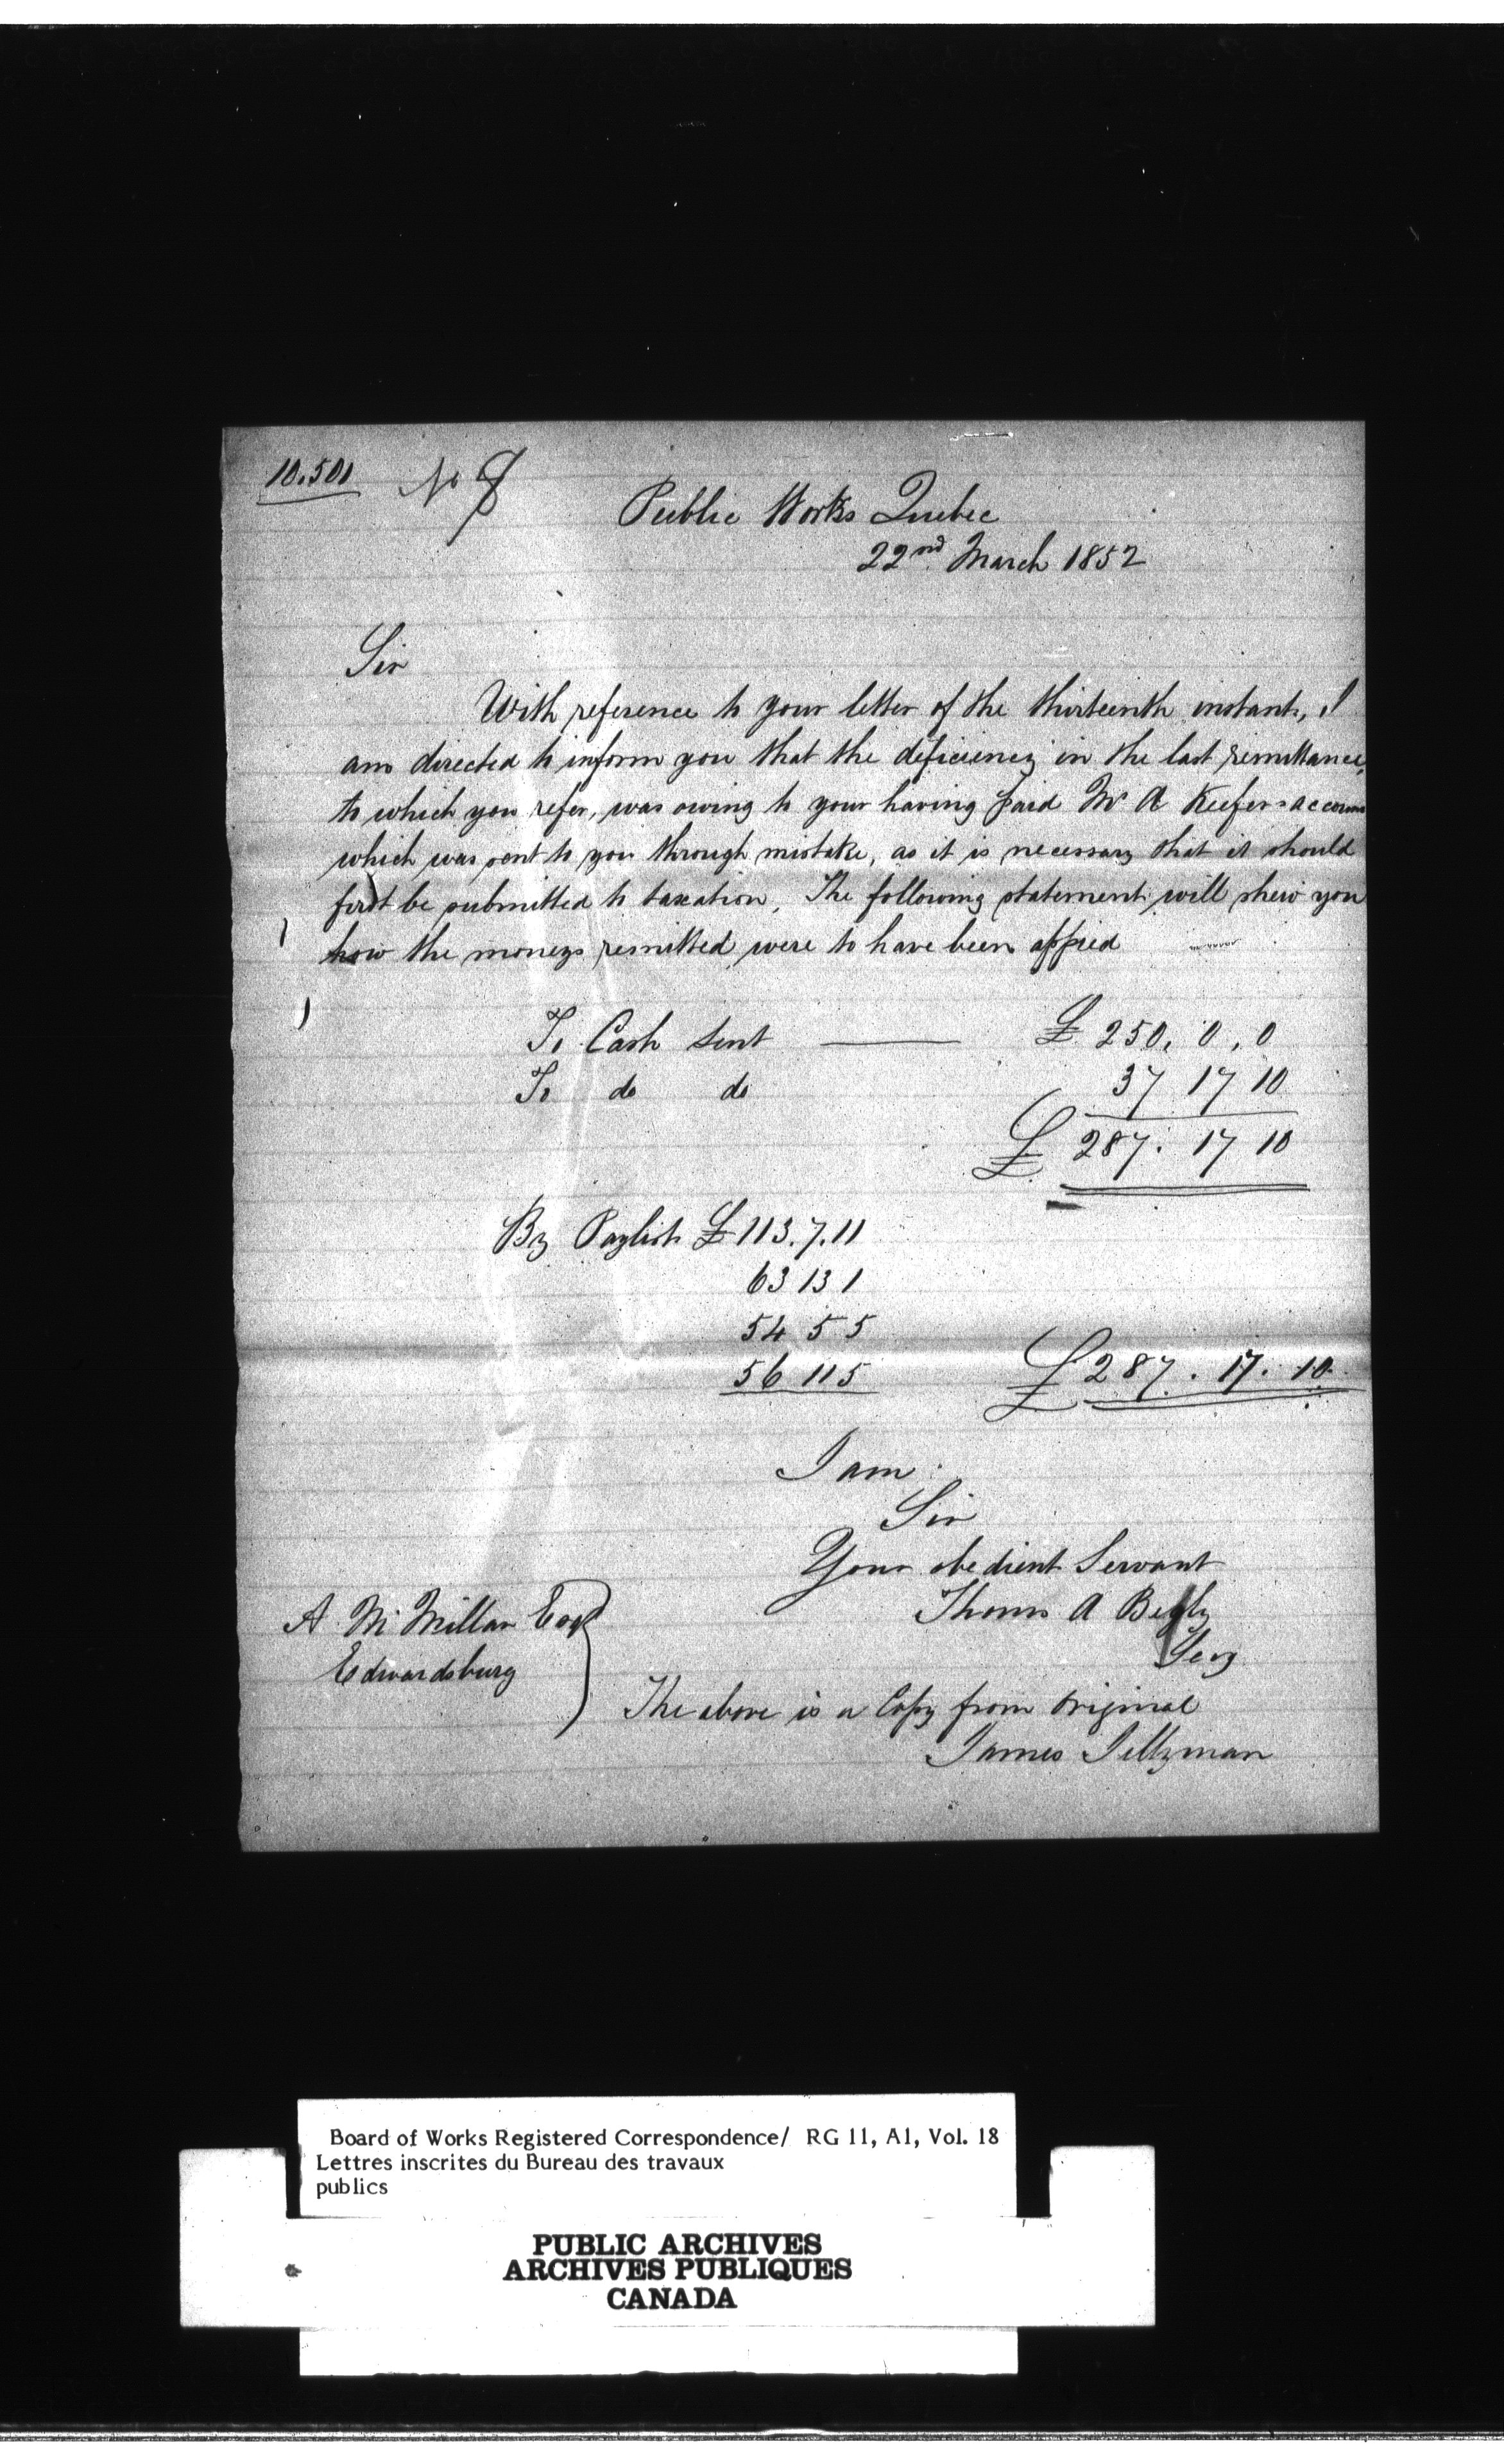 10.501 No 8
Public Works Quebec
22nd March 1852
Sir
With reference to your letter of the thirteenth instant, I
am directed to inform you that the deficiency in the last remittance,
to which you refer, was owing to your having paid Mr A Keefers accoun
which was sent to you through mistake, as it is necessary that it should
first be submitted to taxation. The following statement will shew you
how the moneys remitted were to have been appied
To Cash sent £ 250. 0. 0
To do do 37 17 10
£ 287. 17 10
By Paylist £ 113. 7. 11
63 13 1
54 5 5
56 11 5 £ 287. 17. 10
I am
Sir
Your obedient Servant
Thomas A Begly
Secy
A McMillan Esq
Edwardsburg
The above is a Copy from original
James
Board of Works Registered Correspondence/ RG 11, A1, Vol. 18
Lettres inscrites du Bureau des travaux
publics
PUBLIC ARCHIVES
ARCHIVES PUBLIQUES
CANADA